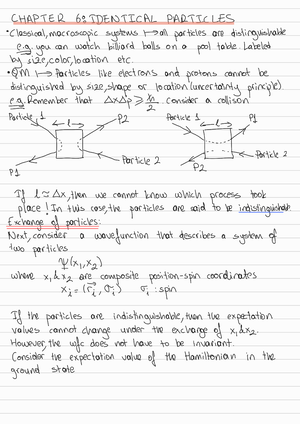 CHAPTER 6: IDENTICAL PARTICLES
• Classical, macroscopic systems ↦ all particles are distinguishable
e.g. you can watch billiard balls on a pool table. Labeled
by size, color, location etc.
• QM ↦ Particles like electrons and protons cannot be
distinguished by size, shape or location (uncertainty principle).
e.g. Remember that Δx Δp ⩾ ħ/2. Consider a collision
Particle 1 ← l → P2 Particle 1 ← l → P2
P1 Particle 2 P1 Particle 2
If l ≈ Δx, then we cannot know which process took
place! In this case, the particles are said to be indistinguishable
Exchange of particles:
Next, consider a wavefunction that describes a system of
two particles
Ψ(x₁, x₂)
where x₁ & x₂ are composite position-spin coordinates
xᵢ = (r⃗ᵢ, σᵢ) σᵢ: spin
If the particles are indistinguishable, then the expectation
values cannot change under the exchange of x₁ & x₂.
However, the wfc does not have to be invariant.
Consider the expectation value of the Hamiltonian in the
ground state